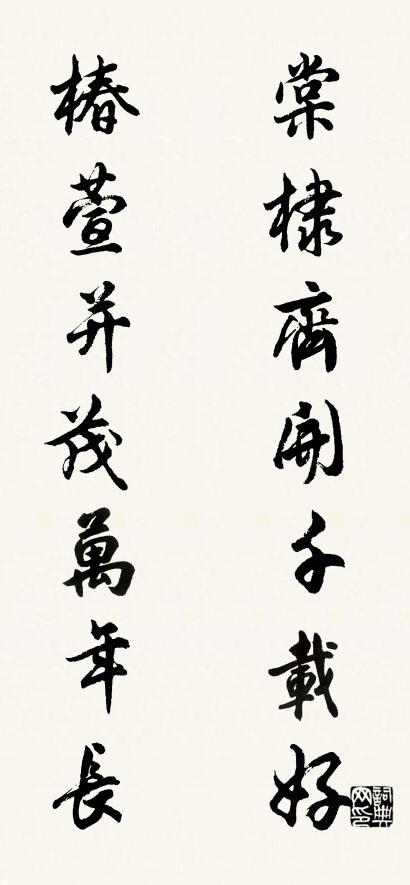 棠棣齊開千載好
椿萱并茂萬年長
詞典网印